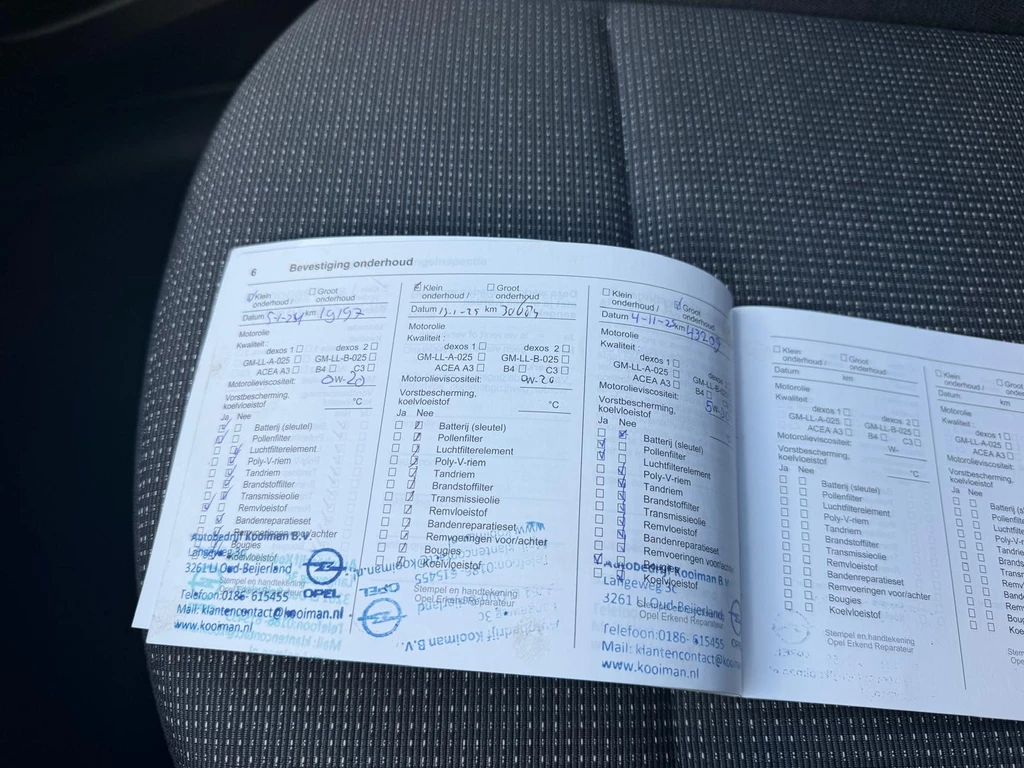 6 Bevestiging onderhoud
Klein onderhoud / Groot onderhoud
Datum 5-1-24 km 19197
Motorolie
Kwaliteit :
dexos 1 dexos 2
GM-LL-A-025 GM-LL-B-025
ACEA A3 B4 C3
Motorolieviscositeit: 0W-20
Vorstbescherming, koelvloeistof °C
Ja Nee
Batterij (sleutel)
Pollenfilter
Luchtfilterelement
Poly-V-riem
Tandriem
Brandstoffilter
Transmissieolie
Remvloeistof
Bandenreparatieset
Remvoeringen voor/achter
Bougies
Koelvloeistof
Stempel en handtekening
Autobedrijf Kooiman B.V.
Langeweg 3c
3261 LJ Oud-Beijerland
OPEL
Telefoon:0186- 615455
Mail: klantencontact@kooiman.nl
www.kooiman.nl
Klein onderhoud / Groot onderhoud
Datum km
Motorolie
Kwaliteit :
dexos 1 dexos 2
GM-LL-A-025 GM-LL-B-025
ACEA A3 B4 C3
Motorolieviscositeit: 0W-20
Vorstbescherming, koelvloeistof °C
Ja Nee
Batterij (sleutel)
Pollenfilter
Luchtfilterelement
Poly-V-riem
Tandriem
Brandstoffilter
Transmissieolie
Bandenreparatieset
Remvoeringen voor/achter
Bougies
Koelvloeistof
Stempel en handtekening
Opel Erkend Reparateur
OPEL
Klein onderhoud / Groot onderhoud
Datum 4-11-25 km 43205
Motorolie
Kwaliteit :
dexos 1
GM-LL-A-025
ACEA A3 B4
Motorolieviscositeit:
Vorstbescherming, koelvloeistof
Ja Nee
Batterij (sleutel)
Pollenfilter
Luchtfilterelement
Poly-V-riem
Tandriem
Brandstoffilter
Transmissieolie
Remvloeistof
Bandenreparatieset
Remvoeringen voor/achter
Bougies
Koelvloeistof
Autobedrijf Kooiman B.V
Langeweg 3c
3261 LJ Oud-Beijerland
Telefoon:0186- 615455
Mail: klantencontact@
www.kooiman.nl
Klein onderhoud / Groot onderhoud
Datum km
Motorolie
Kwaliteit :
dexos 1 dexos 2
GM-LL-A-025 GM-LL-B-025
ACEA A3 B4 C3
Motorolieviscositeit: W-
Vorstbescherming, koelvloeistof °C
Ja Nee
Batterij (sleutel)
Pollenfilter
Luchtfilterelement
Poly-V-riem
Tandriem
Brandstoffilter
Transmissieolie
Remvloeistof
Bandenreparatieset
Remvoeringen voor/achter
Bougies
Koelvloeistof
Stempel en handtekening
Opel Erkend Reparateur
Klein onderhoud /
Datum km
Motorolie
Kwaliteit :
dexos 1
GM-LL-A-025
ACEA A3
Motorolieviscositeit:
Vorstbescherming, koelvloeistof
Ja Nee